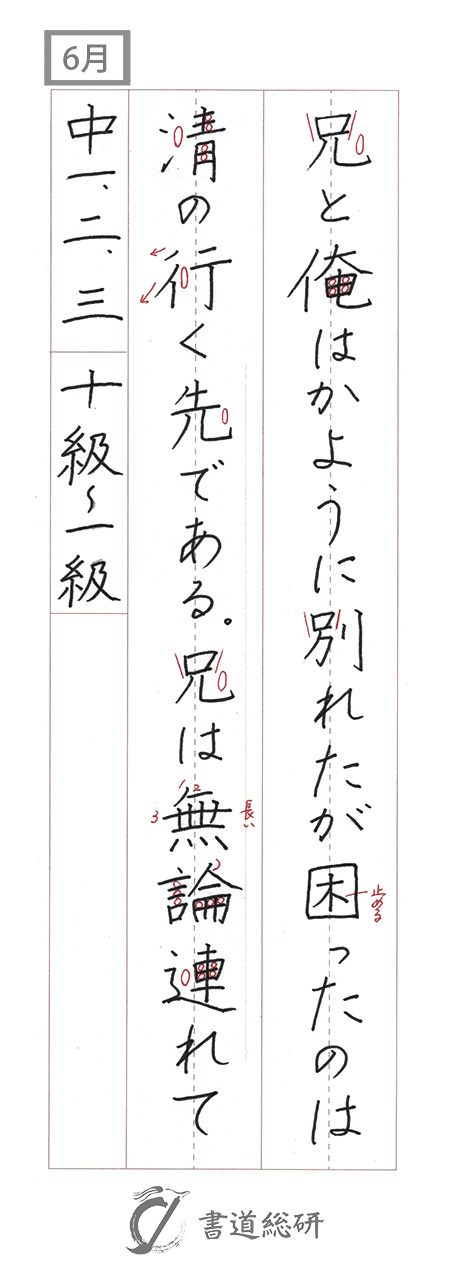 6月
兄と俺はかように別れたが困ったのは
止める
清の行く先である。兄は無論連れて
1 2
3
長い
中一、二、三 十級〜一級
書道総研